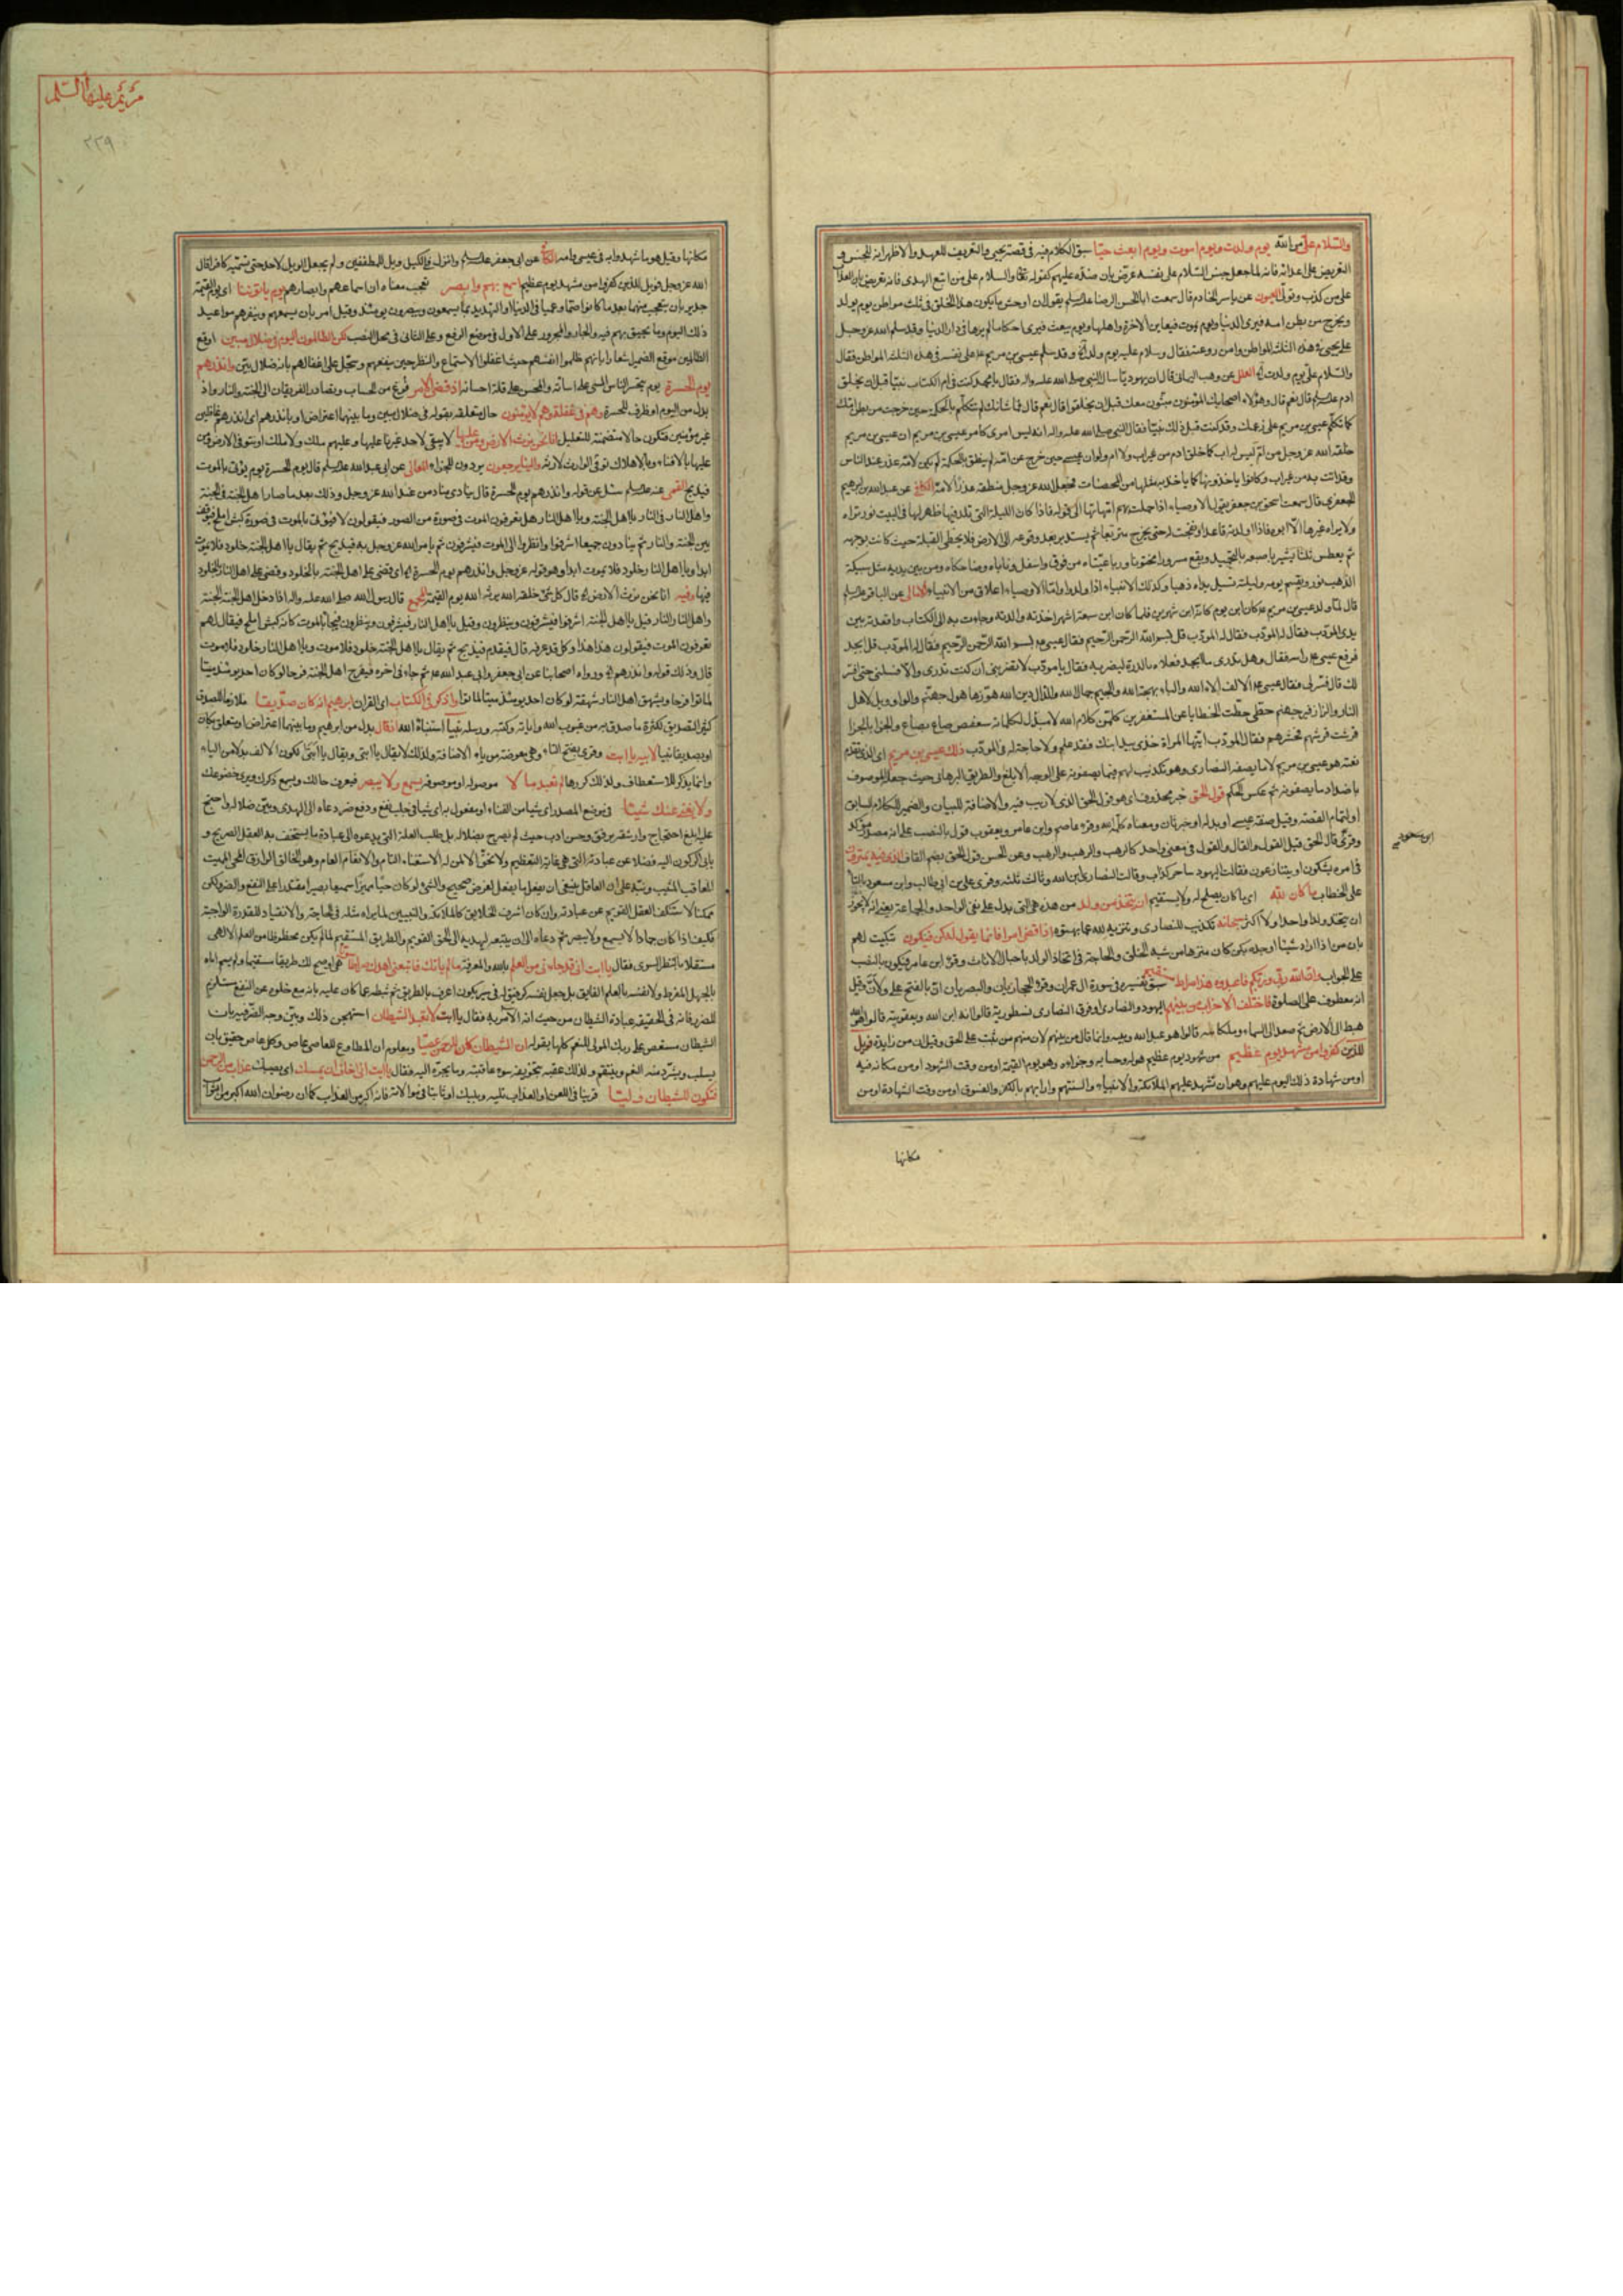 والسلام علىّ من الله يوم ولدت ويوم اموت ويوم ابعث حيّا سبق الكلام فيه فى قصة يحيى والتعريف للعهد والاظهر انه للجنس و
التعريض على اعدائه فانه لما جعل جنس السلام على نفسه عرّض بان ضده عليهم كقوله تعالى والسلام على من اتبع الهدى فانه تعريض بان العذاب
على من كذب وتولّى العيون عن ياسر الخادم قال سمعت ابا الحسن الرضا يقول ان اوحش ما يكون هذا الخلق فى ثلث مواطن يوم يولد
ويخرج من بطن امه فيرى الدنيا ويوم يموت فيعاين الاخرة واهلها ويوم يبعث فيرى احكاما لم يرها فى دار الدنيا وقد سلم الله عز وجل
على يحيى فى هذه الثلث المواطن وامن روعته فقال وسلام عليه يوم ولد وقد سلم عيسى بن مريم على نفسه فى هذه الثلث المواطن فقال
والسلام علىّ يوم ولدت العلل عن وهب اليمانى قال ان يهوديا سال النبى صلى الله عليه واله فقال يا محمد كنت فى ام الكتاب نبيا قبل ان يخلق
ادم قال نعم قال وهؤلاء اصحابك المؤمنون مثبتون معك قبل ان يخلقوا قال نعم قال فما شانك لم تتكلم بالحكمة حين خرجت من بطن امك
كما تكلم عيسى بن مريم على زعمك وقد كنت قبل ذلك نبيا فقال النبى صلى الله عليه واله انه ليس امرى كامر عيسى بن مريم ان عيسى بن مريم
خلقه الله عز وجل من ام ليس له اب كما خلق ادم من غير اب ولا ام ولو ان عيسى حين خرج من امه لم ينطق بالحكمة لم يكن لامه عذر عند الناس
وقد اتت به من غير اب وكانوا ياخذونها كما ياخذ به مثلها من المحصنات فجعل الله عز وجل منطقه عذرا لامه الكافى عن عبد الله بن ابرهيم
الجعفرى قال سمعت اسحق بن جعفر يقول الاوصياء اذا حملت بهم امهاتهم الى قوله فاذا كان الليلة التى تلد فيها ظهر لها فى البيت نور تراه
ولا يراه غيرها الا ابوه فاذا ولدته قاعدا وتفتحت له حتى يخرج متربعا ثم يستدير بعد وقوعه الى الارض فلا يخطى القبلة حيث كانت بوجهه
ثم يعطس ثلثا يشير باصبعه بالتحميد ويقع مسرورا مختونا ورباعيتاه من فوق واسفل وناباه وضاحكاه ومن بين يديه مثل سبيكة
الذهب نور ويقيم يومه وليلته تسيل يداه ذهبا وكذلك الانبياء اذا ولدوا وانما الاوصياء اعلاق من الانبياء الامالى عن الباقر
قال لما ولد عيسى بن مريم كان ابن يوم كانه ابن شهرين فلما كان ابن سبعة اشهر اخذته والدته وجاءت به الى الكتاب واقعدته بين
يدى المؤدب فقال له المؤدب قل بسم الله الرحمن الرحيم فقال عيسى بسم الله الرحمن الرحيم فقال له المؤدب قل ابجد
فرفع عيسى راسه فقال وهل تدرى ما ابجد فعلاه بالدرة ليضربه فقال يا مؤدب لا تضربنى ان كنت تدرى والا فسلنى حتى افسر
لك قال فسر لى فقال عيسى الالف الاء الله والباء بهجة الله والجيم جمال الله والدال دين الله هوّز ها هول جهنم والواو ويل لاهل
النار والزا زفير جهنم حطى حطت الخطايا عن المستغفرين كلمن كلام الله لا مبدل لكلماته سعفص صاع بصاع والجزا بالجزا
قرشت قرشهم فحشرهم فقال المؤدب ايتها المراة خذى بيد ابنك فقد علم ولا حاجة له فى المؤدب ذلك عيسى بن مريم اى الذى تقدم
نعته هو عيسى بن مريم لا ما يصفه النصارى وهو تكذيب لهم فيما يصفونه على الوجه الابلغ والطريق البرهانى حيث جعله الموصوف
باضداد ما يصفونه ثم عكس الحكم قول الحق خبر محذوف اى هو قول الحق الذى لا ريب فيه والاضافة للبيان والضمير للكلام السابق
او لتمام القصة وقيل صفة عيسى او بدله او خبر ثان ومعناه كلمة الله وقرء عاصم وابن عامر ويعقوب قول بالنصب على انه مصدر مؤكد
وقرئ قال الحق قيل القول والقال والقول فى معنى واحد كالرهب والرهب والرهب وعن الحسن قول الحق بضم القاف الذى فيه يمترون
فى امره يشكون او يتنازعون فقالت اليهود ساحر كذاب وقالت النصارى ابن الله وثالث ثلثة وقرئ على بن ابى طالب وابن مسعود بالتا
على الخطاب ما كان لله اى ما كان يصلح له ولا يستقيم ان يتخذ من ولد من هذه هى التى يدل على نفى الواحد والجماعة
ان يتخذ ولدا واحدا ولا اكثر سبحانه تكذيب للنصارى وتنزيه لله عما بهتوه اذا قضى امرا فانما يقول له كن فيكون تبكيت لهم
بان من اذا اراد شيئا اوجده بكن كان منزها من شبه الخلق والحاجة فى اتخاذ الولد باحبال الاناث وقرء ابن عامر فيكون بالنصب
على الجواب وان الله ربى وربكم فاعبدوه هذا صراط مستقيم سبق تفسيره فى سورة ال عمران وقرء الحجازيان والبصريان ان بالفتح على ولان وقيل
انه معطوف على الصلوة فاختلف الاحزاب من بينهم اليهود والنصارى او فرق النصارى نسطورية قالوا انه ابن الله ويعقوبية قالوا هو الله
هبط الى الارض ثم صعد الى السماء وملكائية قالوا هو عبد الله ونبيه وانما قال من بينهم لان منهم من ثبت على الحق وقيل ان من زايدة فويل
للذين كفروا من مشهد يوم عظيم من شهود يوم عظيم هوله وحسابه وجزاؤه وهو يوم القيمة او من وقت الشهود او من مكانه فيه
او من شهادة ذلك اليوم عليهم وهو ان تشهد عليهم الملائكة والانبياء والسنتهم وارابهم بالكفر والفسوق او من وقت الشهادة او من
مكانها
ابن مسعود
مريم عليها السلم
٢٢٩
مكانها وقيل هو ما شهدوا به فى عيسى وامه الكافى عن ابى جعفر وانزل فى الكيل ويل للمطففين ولم يجعل الويل لاحد حتى يسميه كافرا قال
الله عز وجل فويل للذين كفروا من مشهد يوم عظيم اسمع بهم وابصر تعجب معناه ان اسماعهم وابصارهم يوم ياتوننا اى يوم القيمة
جدير بان يتعجب منهما بعد ما كانوا صما وعميا فى الدنيا او التهديد بما يسمعون ويبصرون يومئذ وقيل امر بان يسمعهم ويبصرهم مواعيد
ذلك اليوم وما يحيق بهم فيه والجار والمجرور على الاول فى موضع الرفع وعلى الثانى فى محل النصب لكن الظالمون اليوم فى ضلال مبين اوقع
الظالمين موقع الضمير اشعارا بانهم ظلموا انفسهم حيث اغفلوا الاستماع والنظر حين ينفعهم وسجل على اغفالهم بانه ضلال بيّن وانذرهم
يوم الحسرة يوم يتحسر الناس المسى على اساءته والمحسن على قلة احسانه اذ قضى الامر فرغ من الحساب وتصادر الفريقان الى الجنة والنار واذ
بدل من اليوم او ظرف للحسرة وهم فى غفلة وهم لا يؤمنون حال متعلقة بقوله فى ضلال مبين وما بينهما اعتراض او بانذرهم اى انذرهم غافلين
غير مؤمنين فتكون حالا متضمنة للتعليل انا نحن نرث الارض ومن عليها لا يبقى لاحد غيرنا عليها وعليهم ملك ولا ملك او يتوفى الارض ومن
عليها بالافناء وبالاهلاك توفى الوارث لارثه والينا يرجعون يردون للجزاء المعانى عن ابى عبد الله قال يوم الحسرة يوم يؤتى بالموت
فيذبح القمى عنه سئل عن قوله وانذرهم يوم الحسرة قال ينادى مناد من عند الله عز وجل وذلك بعد ما صار اهل الجنة فى الجنة
واهل النار فى النار يا اهل الجنة ويا اهل النار هل تعرفون الموت فى صورة من الصور فيقولون لا فيؤتى بالموت فى صورة كبش املح فيوقف
بين الجنة والنار ثم ينادون جميعا اشرفوا وانظروا الى الموت فيشرفون ثم يامر الله عز وجل به فيذبح ثم يقال يا اهل الجنة خلود فلا موت
ابدا ويا اهل النار خلود فلا موت ابدا وهو قوله عز وجل وانذرهم يوم الحسرة اى قضى على اهل الجنة بالخلود وقضى على اهل النار بالخلود
فيها وفيه انا نحن نرث الارض قال كل شئ خلقه الله يرثه الله يوم القيمة المجمع قال رسول الله صلى الله عليه واله اذا دخل اهل الجنة الجنة
واهل النار النار قيل يا اهل الجنة اشرفوا فيشرفون وينظرون وقيل يا اهل النار فيشرفون وينظرون فيجاء بالموت كانه كبش املح فيقال لهم
تعرفون الموت فيقولون هذا هذا وكل قد عرفه قال فيقدم فيذبح ثم يقال يا اهل الجنة خلود فلا موت ويا اهل النار خلود فلا موت
قال وذلك قوله وانذرهم ورواه اصحابنا عن ابى جعفر وابى عبد الله ثم جاء فى اخره فيفرح اهل الجنة فرحا لو كان احد يومئذ ميتا
لماتوا فرحا ويشهق اهل النار شهقة لو كان احد يومئذ ميتا لماتوا واذكر فى الكتاب اى القران ابرهيم انه كان صدّيقا ملازما للصدق
كثير التصديق لكثرة ما صدق به من غيوب الله واياته وكتبه ورسله نبيا استنباه الله اذ قال بدل من ابرهيم وما بينهما اعتراض او متعلق بكان
او بصديقا نبيا لابيه يا ابت وقرئ بفتح التاء وهى معوضة من ياء الاضافة ولذلك لا يقال يا ابتى ويقال يا ابتا لكون الالف بدلا من الياء
وانما يذكر للاستعطاف ولذلك كررها لم تعبد ما لا موصولة او موصوفة يسمع ولا يبصر فيعرف حالك ويسمع ذكرك ويرى خضوعك
ولا يغنى عنك شيئا فى موضع المصدر اى شيئا من الغناء او مفعول به اى شيئا فى جلب نفع ودفع ضر دعاه الى الهدى وبيّن ضلاله واحتج
عليه ابلغ احتجاج وارشقه برفق وحسن ادب حيث لم يصرح بضلاله بل طلب العلة التى يدعوه الى عبادة ما يستخف به العقل الصريح و
يابى الركون اليه فضلا عن عبادته التى هى غاية التعظيم ولا تحق الا لمن له الاستغناء التام والانعام العام وهو الخالق الرازق المحيى المميت
المعاقب المثيب ونبّه على ان العاقل ينبغى ان يفعل ما يفعل لغرض صحيح والشئ لو كان حيا مميزا سميعا بصيرا مقتدرا على النفع والضر ولكن
ممكنا لاستنكف العقل القويم عن عبادته وان كان اشرف الخلايق كالملائكة والنبيين لما يراه مثله فى الحاجة والانقياد للقدرة الواجبة
فكيف اذا كان جمادا لا يسمع ولا يبصر ثم دعاه الى ان يتبعه ليهديه الى الحق القويم والطريق المستقيم لما لم يكن محظوظا من العلم الالهى
مستقلا بالنظر السوى فقال يا ابت انى قد جاءنى من العلم بالله والمعرفة ما لم ياتك فاتبعنى اهدك صراطا سويا اى اوضح لك طريقا مستقيما ولم يسم اباه
بالجهل المفرط ولا نفسه بالعلم الفايق بل جعل نفسه كرفيق له فى مسير يكون اعرف بالطريق ثم ثبطه عما كان عليه بانه مع خلوه عن النفع مستلزم
للضر فانه فى الحقيقة عبادة الشيطان من حيث انه الامر به فقال يا ابت لا تعبد الشيطان استهجن ذلك وبيّن وجه الضر فيه بان
الشيطان مستعص على ربك المولى للنعم كلها بقوله ان الشيطان كان للرحمن عصيا ومعلوم ان المطاوع للعاصى عاص وكل عاص حقيق بان
يسلب ويسترد منه النعم وينتقم ولذلك عقبه بتخويفه سوء عاقبته وما يجره اليه فقال يا ابت انى اخاف ان يمسك اى يصيبك عذاب من الرحمن
فتكون للشيطان وليّا قرينا فى اللعن او العذاب تليه ويليك او ثابتا فى موالاته فانه اكبر من العذاب كما ان رضوان الله اكبر من الثواب